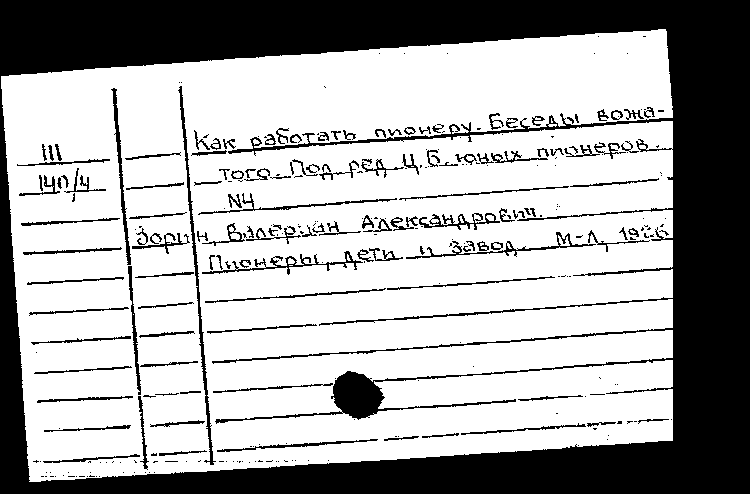 III
140/4
Как работать пионеру. Беседы вожа-
того. Под ред. Ц.Б. юных пионеров.
N4
Зорин, Валериан Александрович.
Пионеры, дети и завод. М-Л, 1926